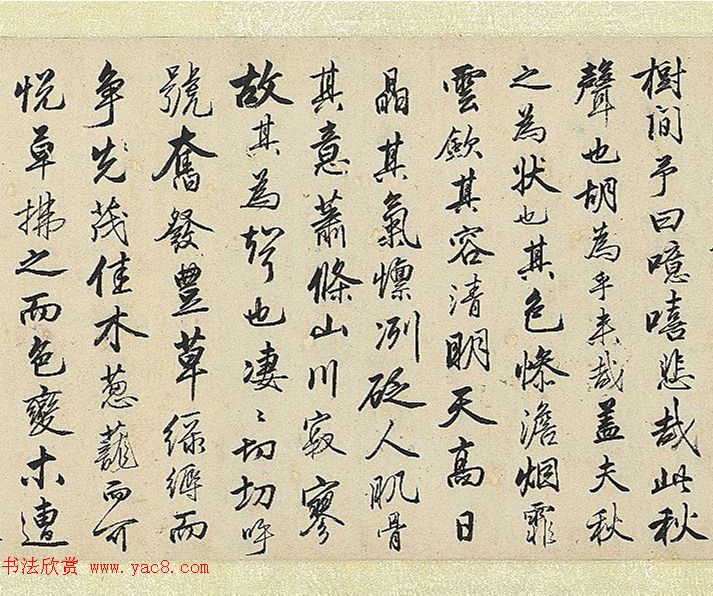 樹間予曰噫嘻悲哉此秋
聲也胡為乎来哉盖夫秋
之為状也其色惨澹烟霏
雲歛其容清明天高日
晶其氣憟冽砭人肌骨
其意蕭條山川寂寥
故其為聲也凄〻切切呼
號奮發豊草緑縟而
争先茂佳木葱蘢而可
悦草拂之而色變木遭
书法欣赏 www.yac8.com